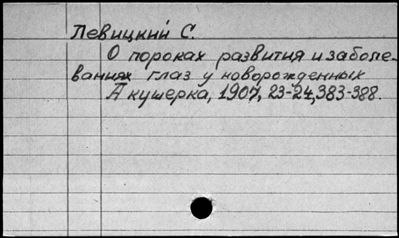 Левицкий С.
О пороках развития и заболе-
ваниях глаз у новорожденных
Акушерка, 1907, 23-24, 383-388.